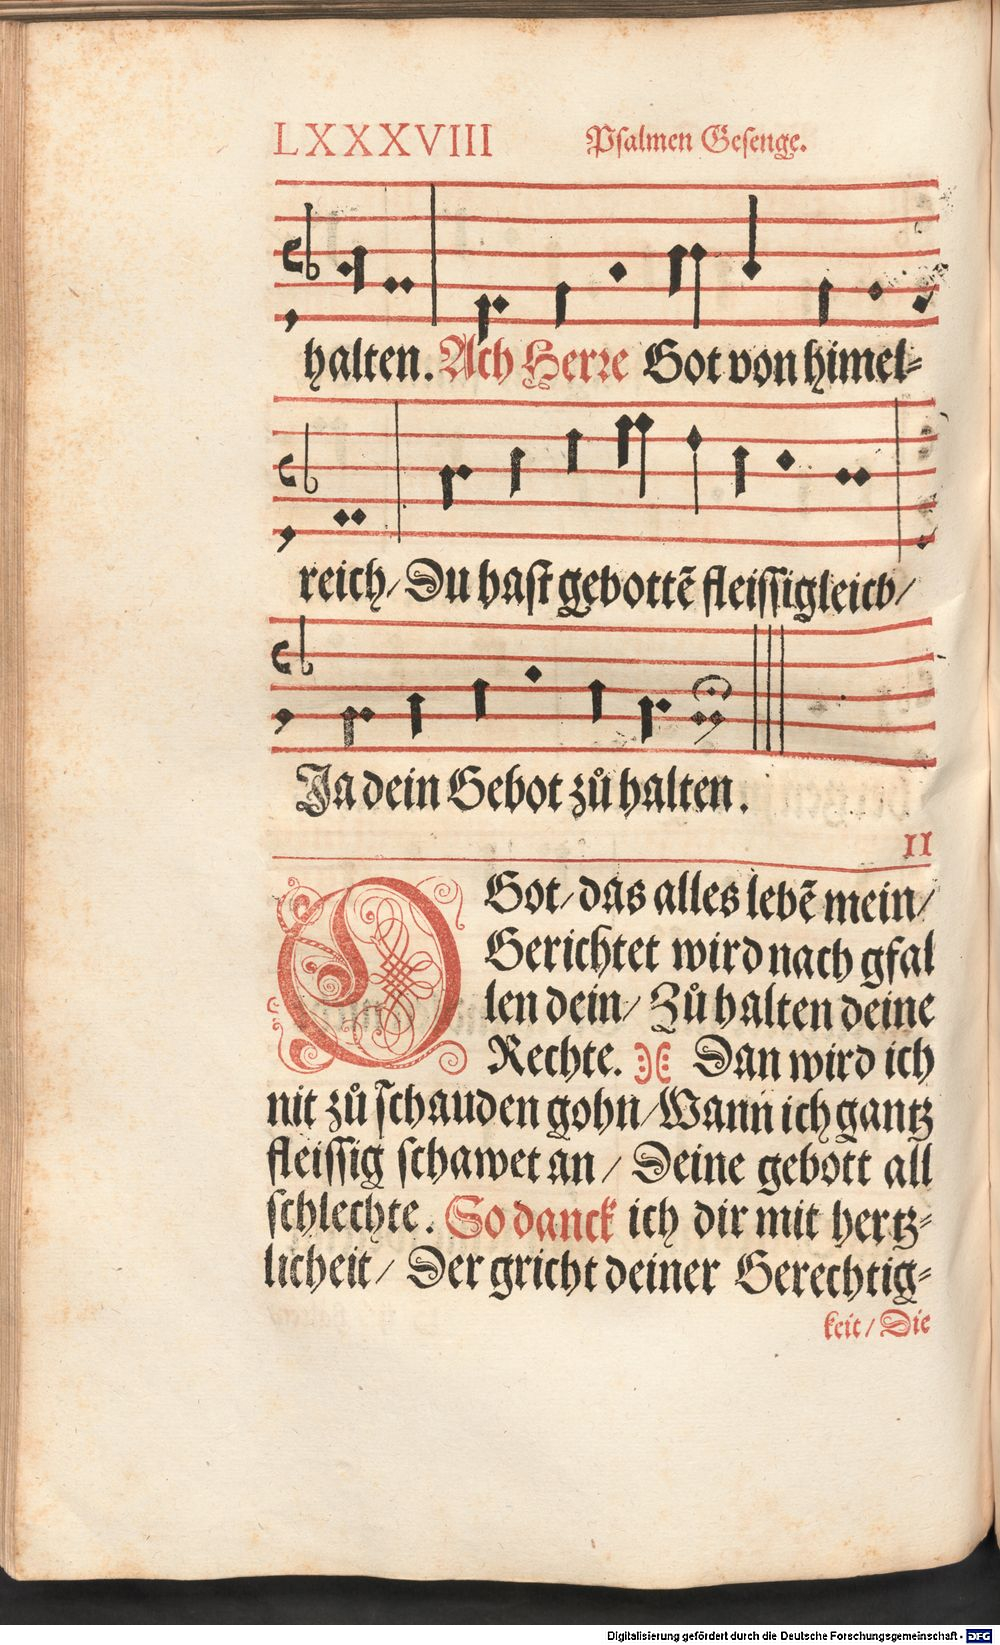 LXXXVIII Psalmen Gesenge.
halten. Ach Herre Got von himel-
reich/ Du hast gebottẽ fleissigleich/
Ja dein Gebot zů halten.
II
O Got/ das alles lebẽ mein/
Gerichtet wird nach gfal
len dein/ Zů halten deine
Rechte. Dan wird ich
nit zů schanden gohn/ Wann ich gantz
fleissig schawet an/ Deine gebott all
schlechte. So danck ich dir mit hertz-
licheit/ Der gricht deiner Gerechtig-
keit/ Die
Digitalisierung gefördert durch die Deutsche Forschungsgemeinschaft - DFG